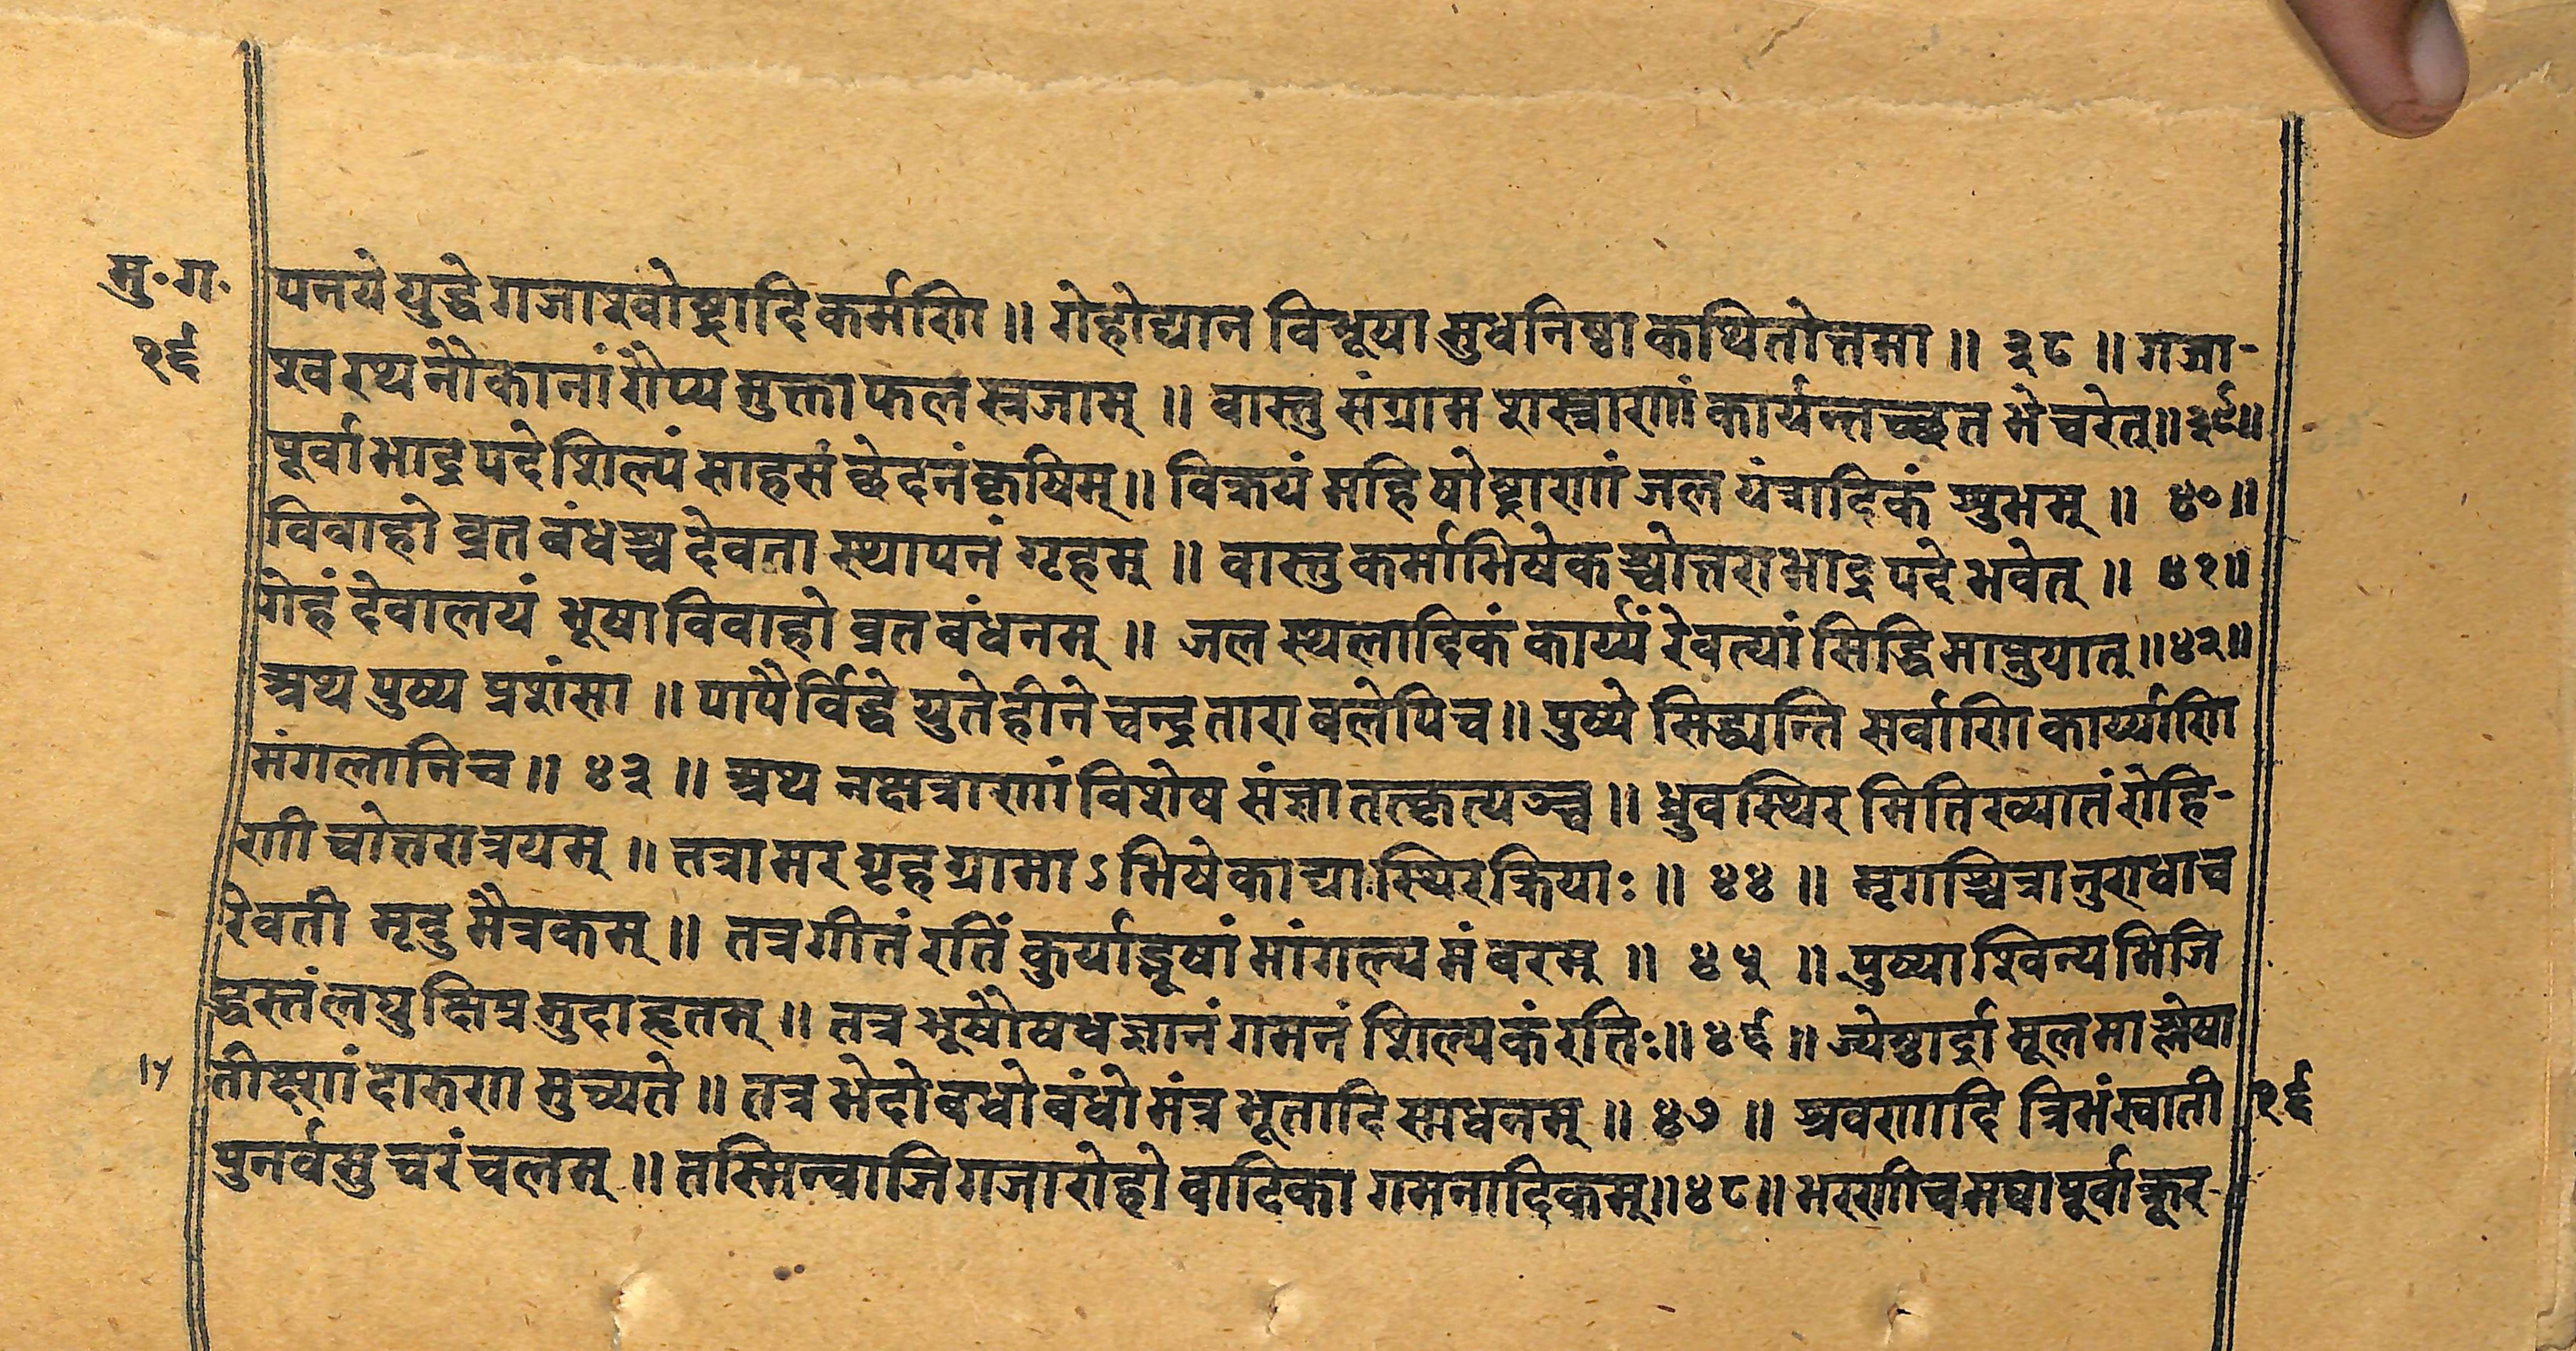 मु॰ग॰
१६
पनये युद्धे गजाश्वोष्ट्रादि कर्मणि ॥ गेहोद्यान विभूषा सुधनिष्ठा कथितोत्तमा ॥ ३८ ॥ गजा-
श्व रथ नौकानां रौप्य मुक्ता फल स्रजाम् ॥ वास्तु संग्राम शस्त्राणां कार्यन्तच्छत भे चरेत् ॥ ३९ ॥
पूर्वाभाद्र पदे शिल्पं साहसं छेदनं कृषिम् ॥ विक्रयं महिषोष्ट्राणां जल यंत्रादिकं शुभम् ॥ ४० ॥
विवाहो व्रत बंधश्च देवता स्थापनं गृहम् ॥ वास्तु कर्माभिषेकश्चोत्तराभाद्र पदे भवेत् ॥ ४१ ॥
गेहं देवालयं भूषा विवाहो व्रत बंधनम् ॥ जल स्थलादिकं कार्य्यं रेवत्यां सिद्धि माप्नुयात् ॥ ४२ ॥
अथ पुष्य प्रशंसा ॥ पापैर्विद्धे युते हीने चन्द्र तारा बलेपिच ॥ पुष्ये सिद्ध्यन्ति सर्वाणि कार्य्याणि
मंगलानिच ॥ ४३ ॥ अथ नक्षत्राणां विशेष संज्ञा तत्कृत्यञ्च ॥ ध्रुवस्थिर मिति ख्यातं रोहि-
णी चोत्तरात्रयम् ॥ तत्रामर गृह ग्रामाऽभिषेकाद्याःस्थिर क्रियाः ॥ ४४ ॥ मृगश्चित्रानुराधाच
रेवती मृदु मैत्रकम् ॥ तत्र गीतं रतिं कुर्याद्भूषां मांगल्य मंबरम् ॥ ४५ ॥ पुष्याश्विन्यभिजि
द्धस्तं लघु क्षिप्र मुदाहृतम् ॥ तत्र भूषौषध ज्ञानं गमनं शिल्पकं रतिः ॥ ४६ ॥ ज्येष्ठार्द्रा मूलमाश्लेषा
तीक्ष्णं दारुण मुच्यते ॥ तत्र भेदो बधो बंधो मंत्र भूतादि साधनम् ॥ ४७ ॥ श्रवणादि त्रिभं स्वाती
१६
पुनर्वसु चरं चलम् ॥ तस्मिन्वाजि गजारोहो वाटिका गमनादिकम् ॥ ४८ ॥ भरणीच मघा पूर्वा क्रूर-